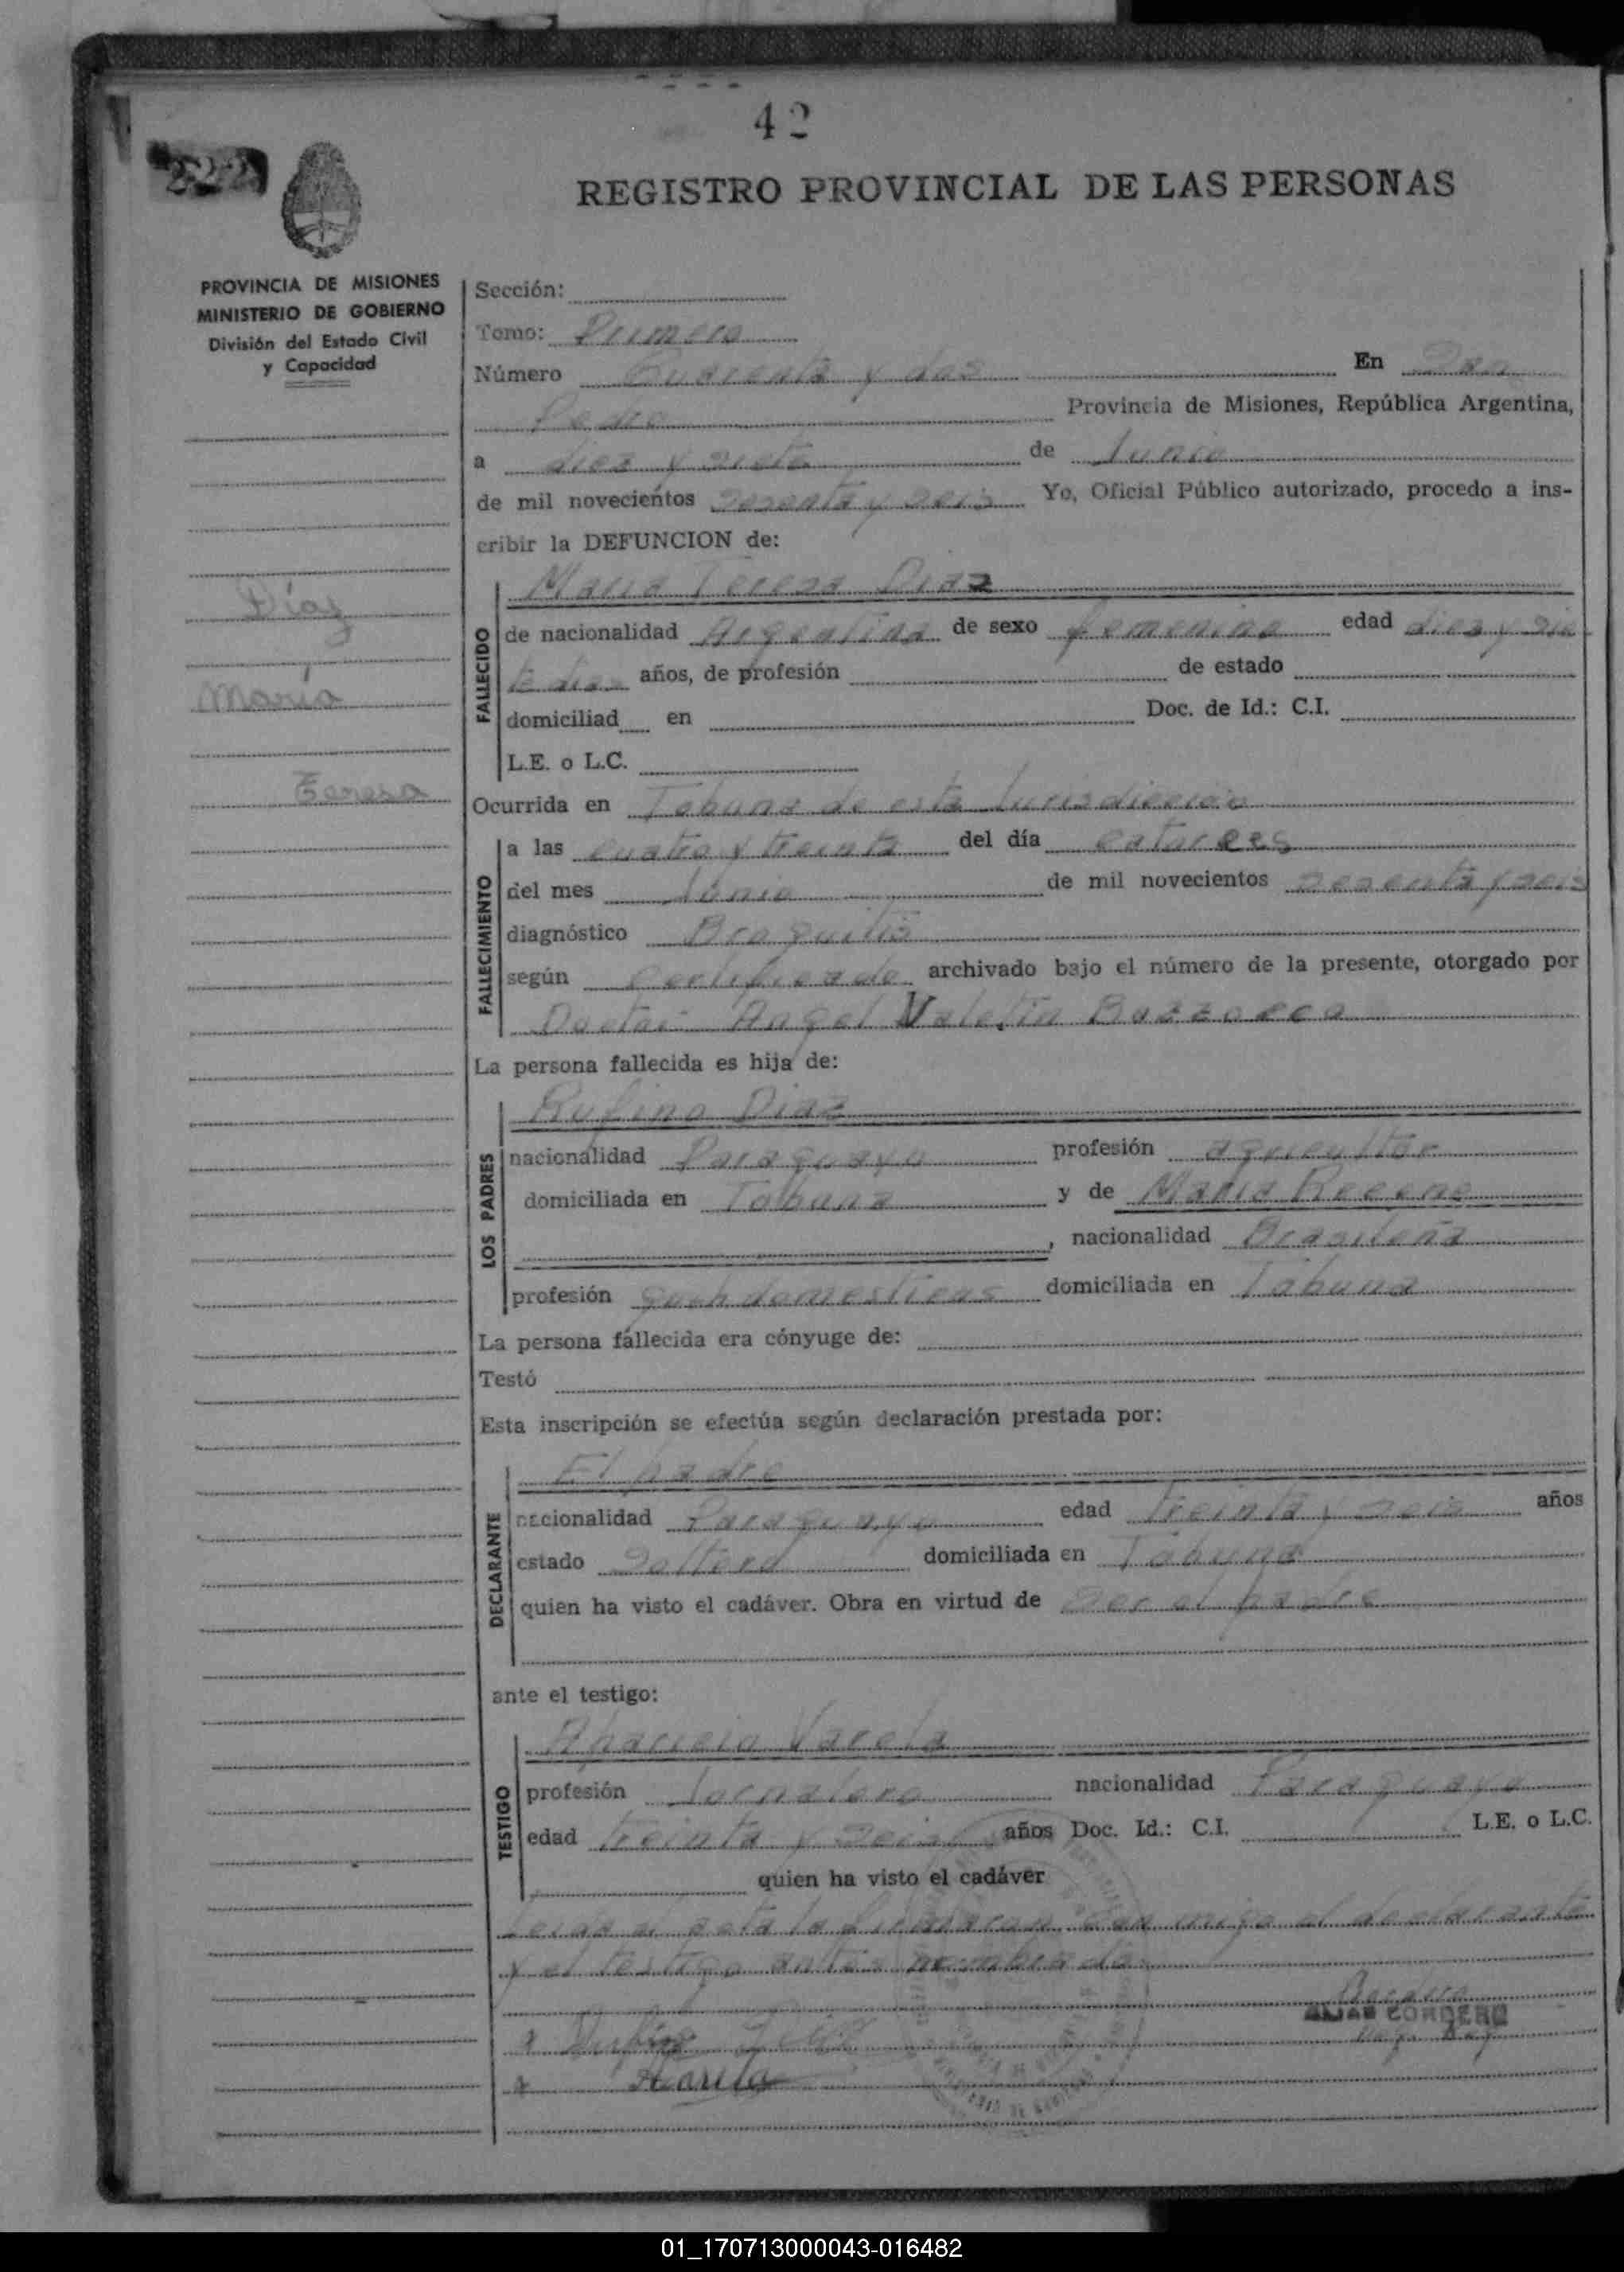 42
222
REGISTRO PROVINCIAL DE LAS PERSONAS
PROVINCIA DE MISIONES
MINISTERIO DE GOBIERNO
División del Estado Civil
y Capacidad
Díaz
María
Teresa
Sección:
Tomo: Primero
Número Cuarenta y dos En San
Pedro Provincia de Misiones, República Argentina,
a diez y siete de Junio
de mil novecientos sesenta y seis Yo, Oficial Público autorizado, procedo a ins-
cribir la DEFUNCION de:
FALLECIDO
Maria Teresa Diaz
de nacionalidad Argentina de sexo femenino edad diez y sie
te dias años, de profesión de estado
domiciliad en Doc. de Id.: C.I.
L.E. o L.C.
Ocurrida en Tobuna de esta Jurisdiccion
FALLECIMIENTO
a las cuatro y treinta del día catorce
del mes Junio de mil novecientos sesenta y seis
diagnóstico Broquitis
según certificado archivado bajo el número de la presente, otorgado por
Doctor Angel Valetin
La persona fallecida es hija de:
LOS PADRES
Rufino Diaz
nacionalidad Paraguayo profesión agricultor
domiciliada en Tobuna y de Maria
, nacionalidad Brasileña
profesión domesticos domiciliada en Tobuna
La persona fallecida era cónyuge de:
Testó
Esta inscripción se efectúa según declaración prestada por:
DECLARANTE
El padre
nacionalidad Paraguayo edad treinta y seis años
estado Soltero domiciliada en Tobuna
quien ha visto el cadáver. Obra en virtud de ser el padre
ante el testigo:
TESTIGO
Aparicio Varela
profesión Jornalero nacionalidad Paraguayo
edad treinta y seis años Doc. Id.: C.I. L.E. o L.C.
quien ha visto el cadáver
Leida el acta la firmaron conmigo el declarante
y el testigo antes nombrado
CORDERO
01_170713000043-016482